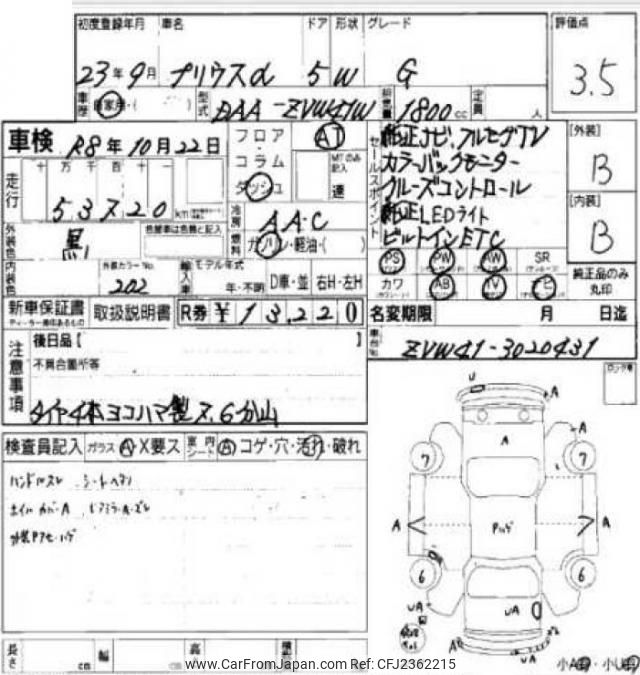 初度登録年月 車名 ドア 形状 グレード 評価点
23年9月 プリウスα 5 W G 3.5
車歴 自家用・( ) 型式 DAA-ZVW41W 排気量 1800cc 定員 人
車検 R8年10月22日
フロア・コラム ダッシュ AT MTのみ記入 速
セールスポイント
純正ナビ、フルセグTV
カラーバックモニター
クルーズコントロール
純正LEDライト
ビルトインETC
[外装] B
[内装] B
走行 十 万 千 百 十 一
53720 km
冷房 AAC
燃料 ガソリン・軽油・( )
外装色 黒 色替車は色替と記入
内装色 外装カラーNo. 202
輸入車 モデル年式 年・不明 D車・並 右H・左H
PS PW AW SR
カワ AB TV ナビ
純正品のみ丸印
新車保証書 取扱説明書 R券 ¥13,220
名変期限 月 日迄
車台No. ZVW41-3020431
注意事項
後日品[
不具合箇所等
タイヤ4本ヨコハマ製 7、6分山
検査員記入 ガラス A・X要ス 室内シート A コゲ・穴・汚れ・破れ
ハンドルスレ
ホイルカバーA
U A A
7 7
A A
6 6
UA UA
A UA
長さ cm 幅 cm 高
www.CarFromJapan.com Ref: CFJ2362215